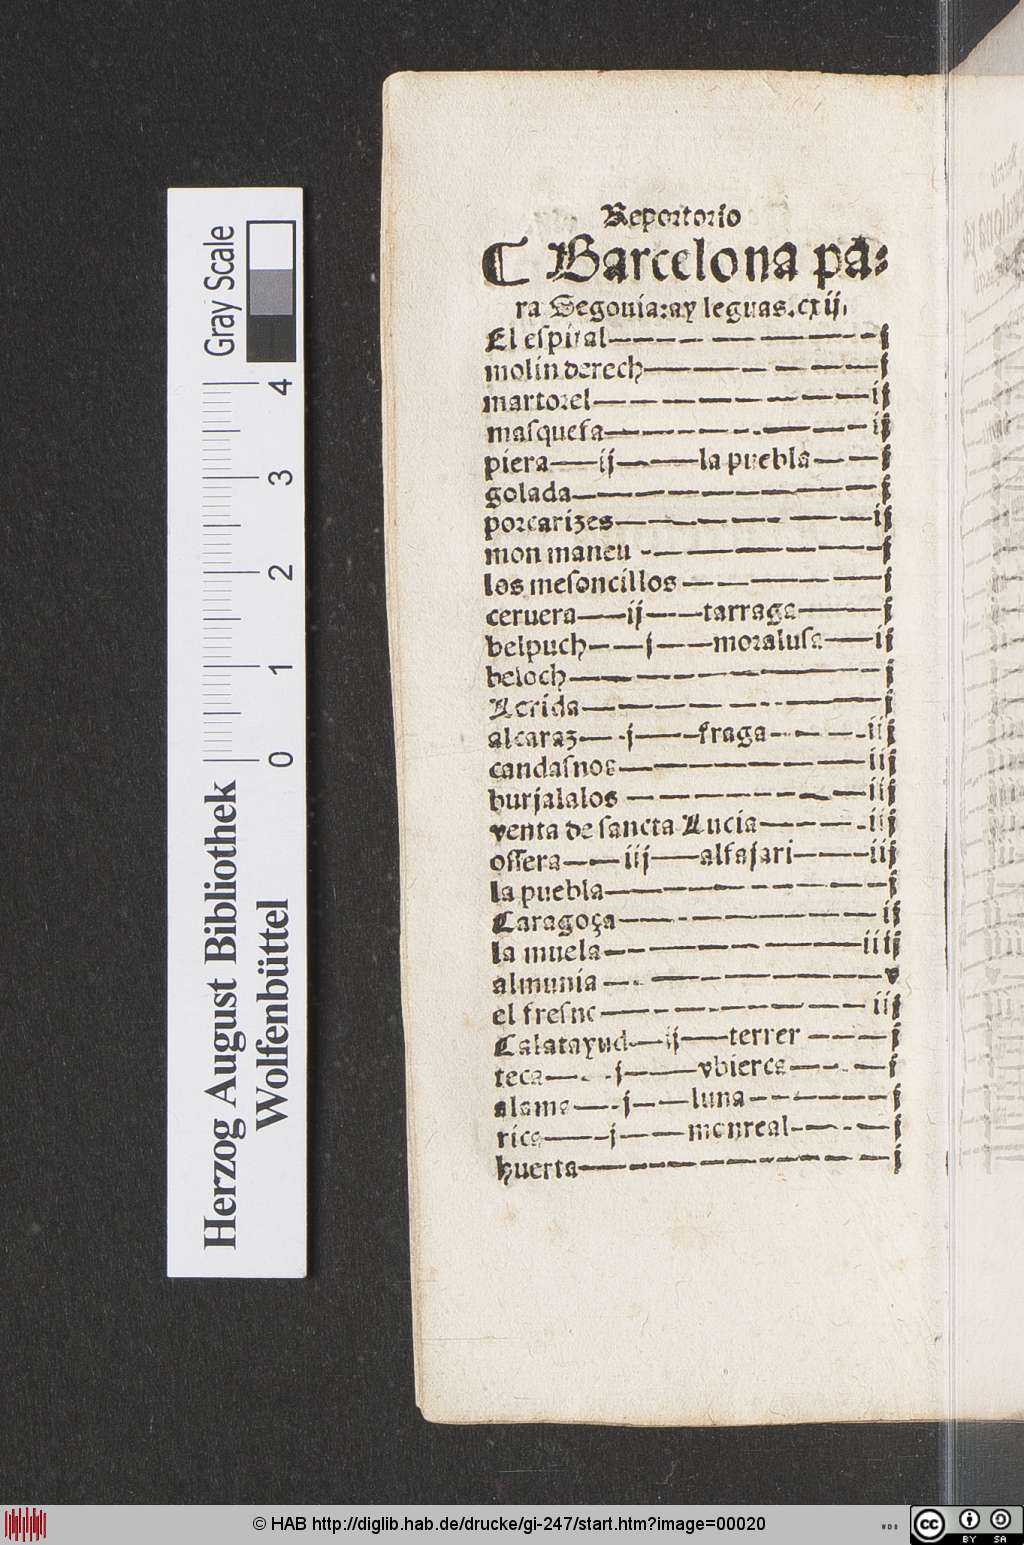 Reportorio
¶ Barcelona pa-
ra Segouia: ay leguas. cxij.
El espital j
molin derech j
martorel ij
masquefa ij
piera ij la puebla j
golada j
porcarizes ij
mon maneu j
los mesoncillos j
ceruera ij tarraga j
belpuch j moralusa ij
beloch j
Lerida j
alcaraz j fraga iij
candasnos iij
burjalalos iij
venta de sancta Lucia iij
ossera iij alfajari iij
la puebla j
Caragoça ij
la muela iiij
almunia v
el fresne iij
Calatayud ij terrer j
teca j vbierca j
alama j luna j
rica j monreal j
huerta j
Gray Scale
4 3 2 1 0
Herzog August Bibliothek
Wolfenbüttel
© HAB http://diglib.hab.de/drucke/gi-247/start.htm?image=00020
WDB
cc BY SA